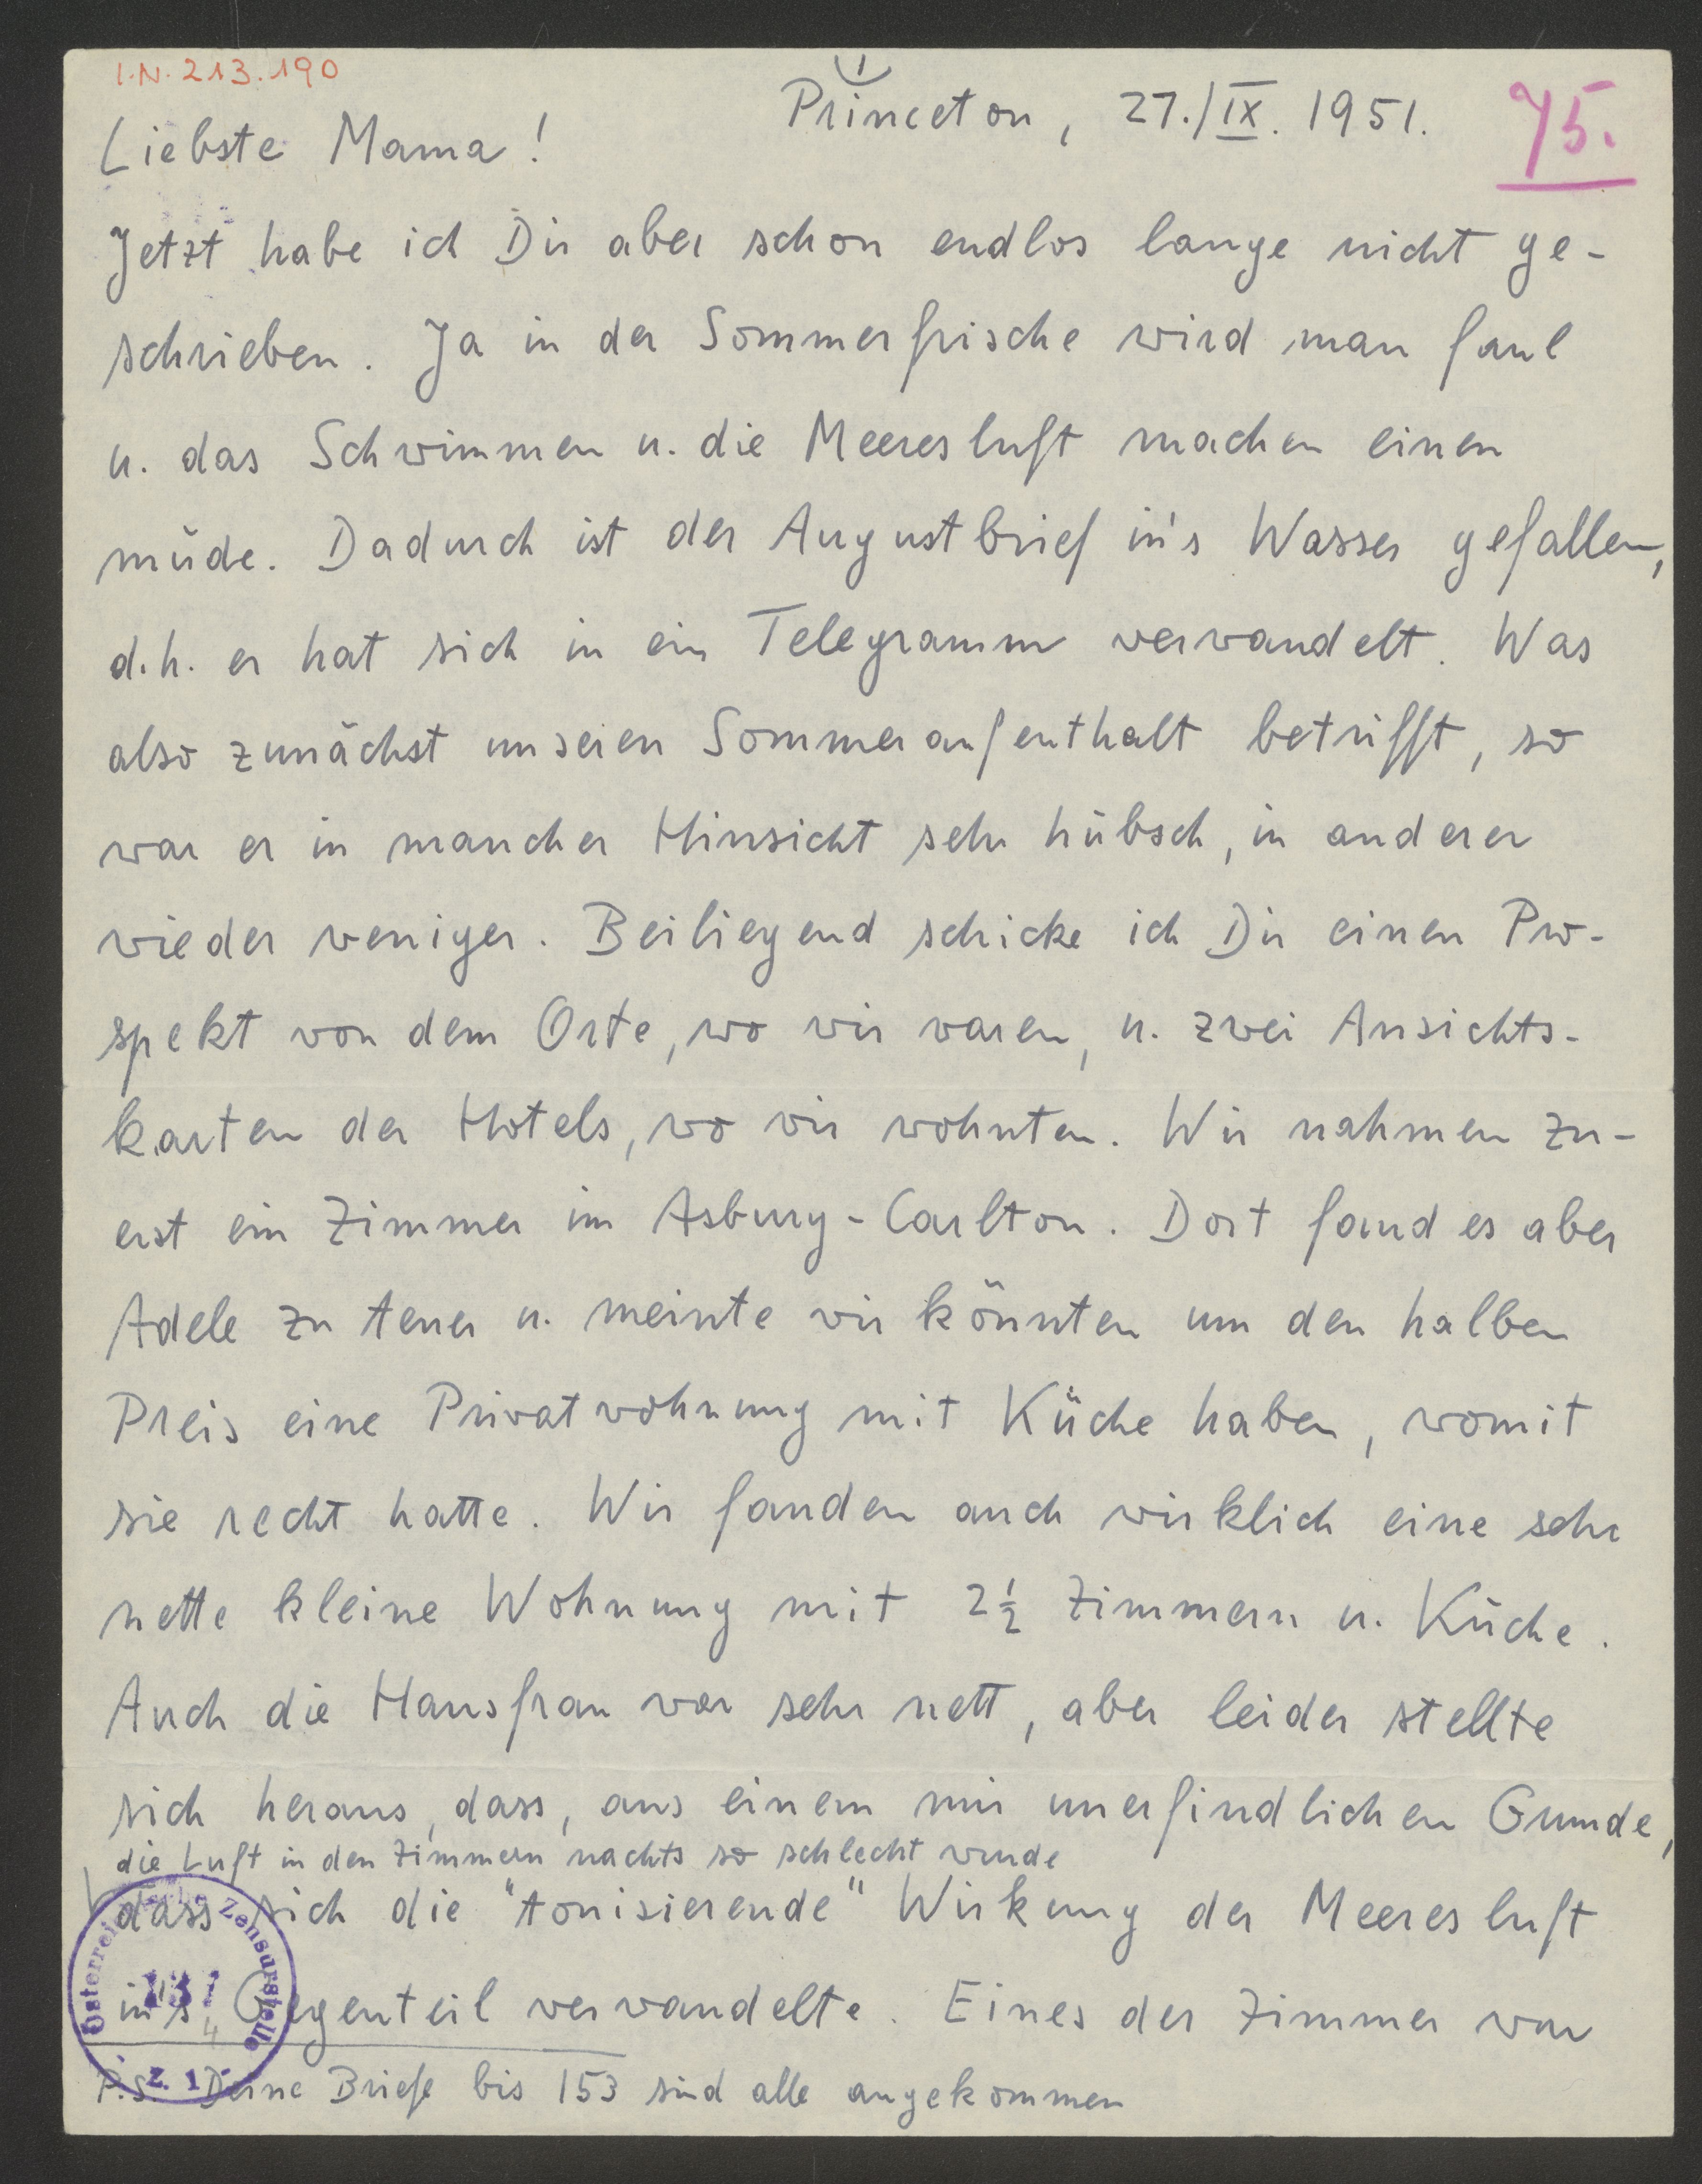 I.N. 213.190
1
Princeton, 27./IX. 1951.
75.
Liebste Mama!
Jetzt habe ich Dir aber schon endlos lange nicht ge-
schrieben. Ja in der Sommerfrische wird man faul
u. das Schwimmen u. die Meeresluft machen einen
müde. Dadurch ist der Augustbrief in's Wasser gefallen,
d.h. er hat sich in ein Telegramm verwandelt. Was
also zunächst unseren Sommeraufenthalt betrifft, so
war er in mancher Hinsicht sehr hübsch, in anderer
wieder weniger. Beiliegend schicke ich Dir einen Pro-
spekt von dem Orte, wo wir waren, u. zwei Ansichts-
karten der Hotels, wo wir wohnten. Wir nahmen zu-
erst ein Zimmer im Asbury-Carlton. Dort fand es aber
Adele zu teuer u. meinte wir könnten um den halben
Preis eine Privatwohnung mit Küche haben, womit
sie recht hatte. Wir fanden auch wirklich eine sehr
nette kleine Wohnung mit 2½ Zimmern u. Küche.
Auch die Hausfrau war sehr nett, aber leider stellte
sich heraus, dass, aus einem mir unerfindlichen Grunde,
die Luft in den Zimmern nachts so schlecht wurde
dass sich die "tonisierende" Wirkung der Meeresluft
in's Gegenteil verwandelte. Eines der Zimmer war
P.S. Deine Briefe bis 153 sind alle angekommen
Österreichische Zensurstelle
Z. 1
4